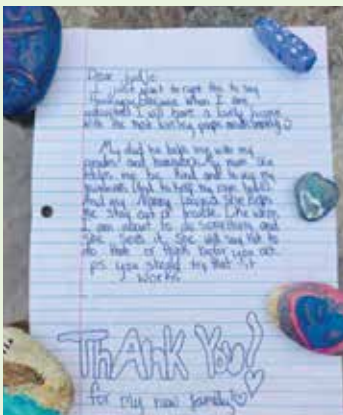 Dear judje
I just want to right this to say
thankyou because when I am
adopted I will have a lovely home
with the most loving people and family
My dad he helps me with my
grades and homework My mum she
helps me be kind and to use my
manners And to help my room tidy
And my Nanny Louise she helps
me stay out of trouble. Like when
I am about to do something and
she sees it. She will say not to
do that or think befor you act
ps you should try that it
works
THANK YOU!
for my new family